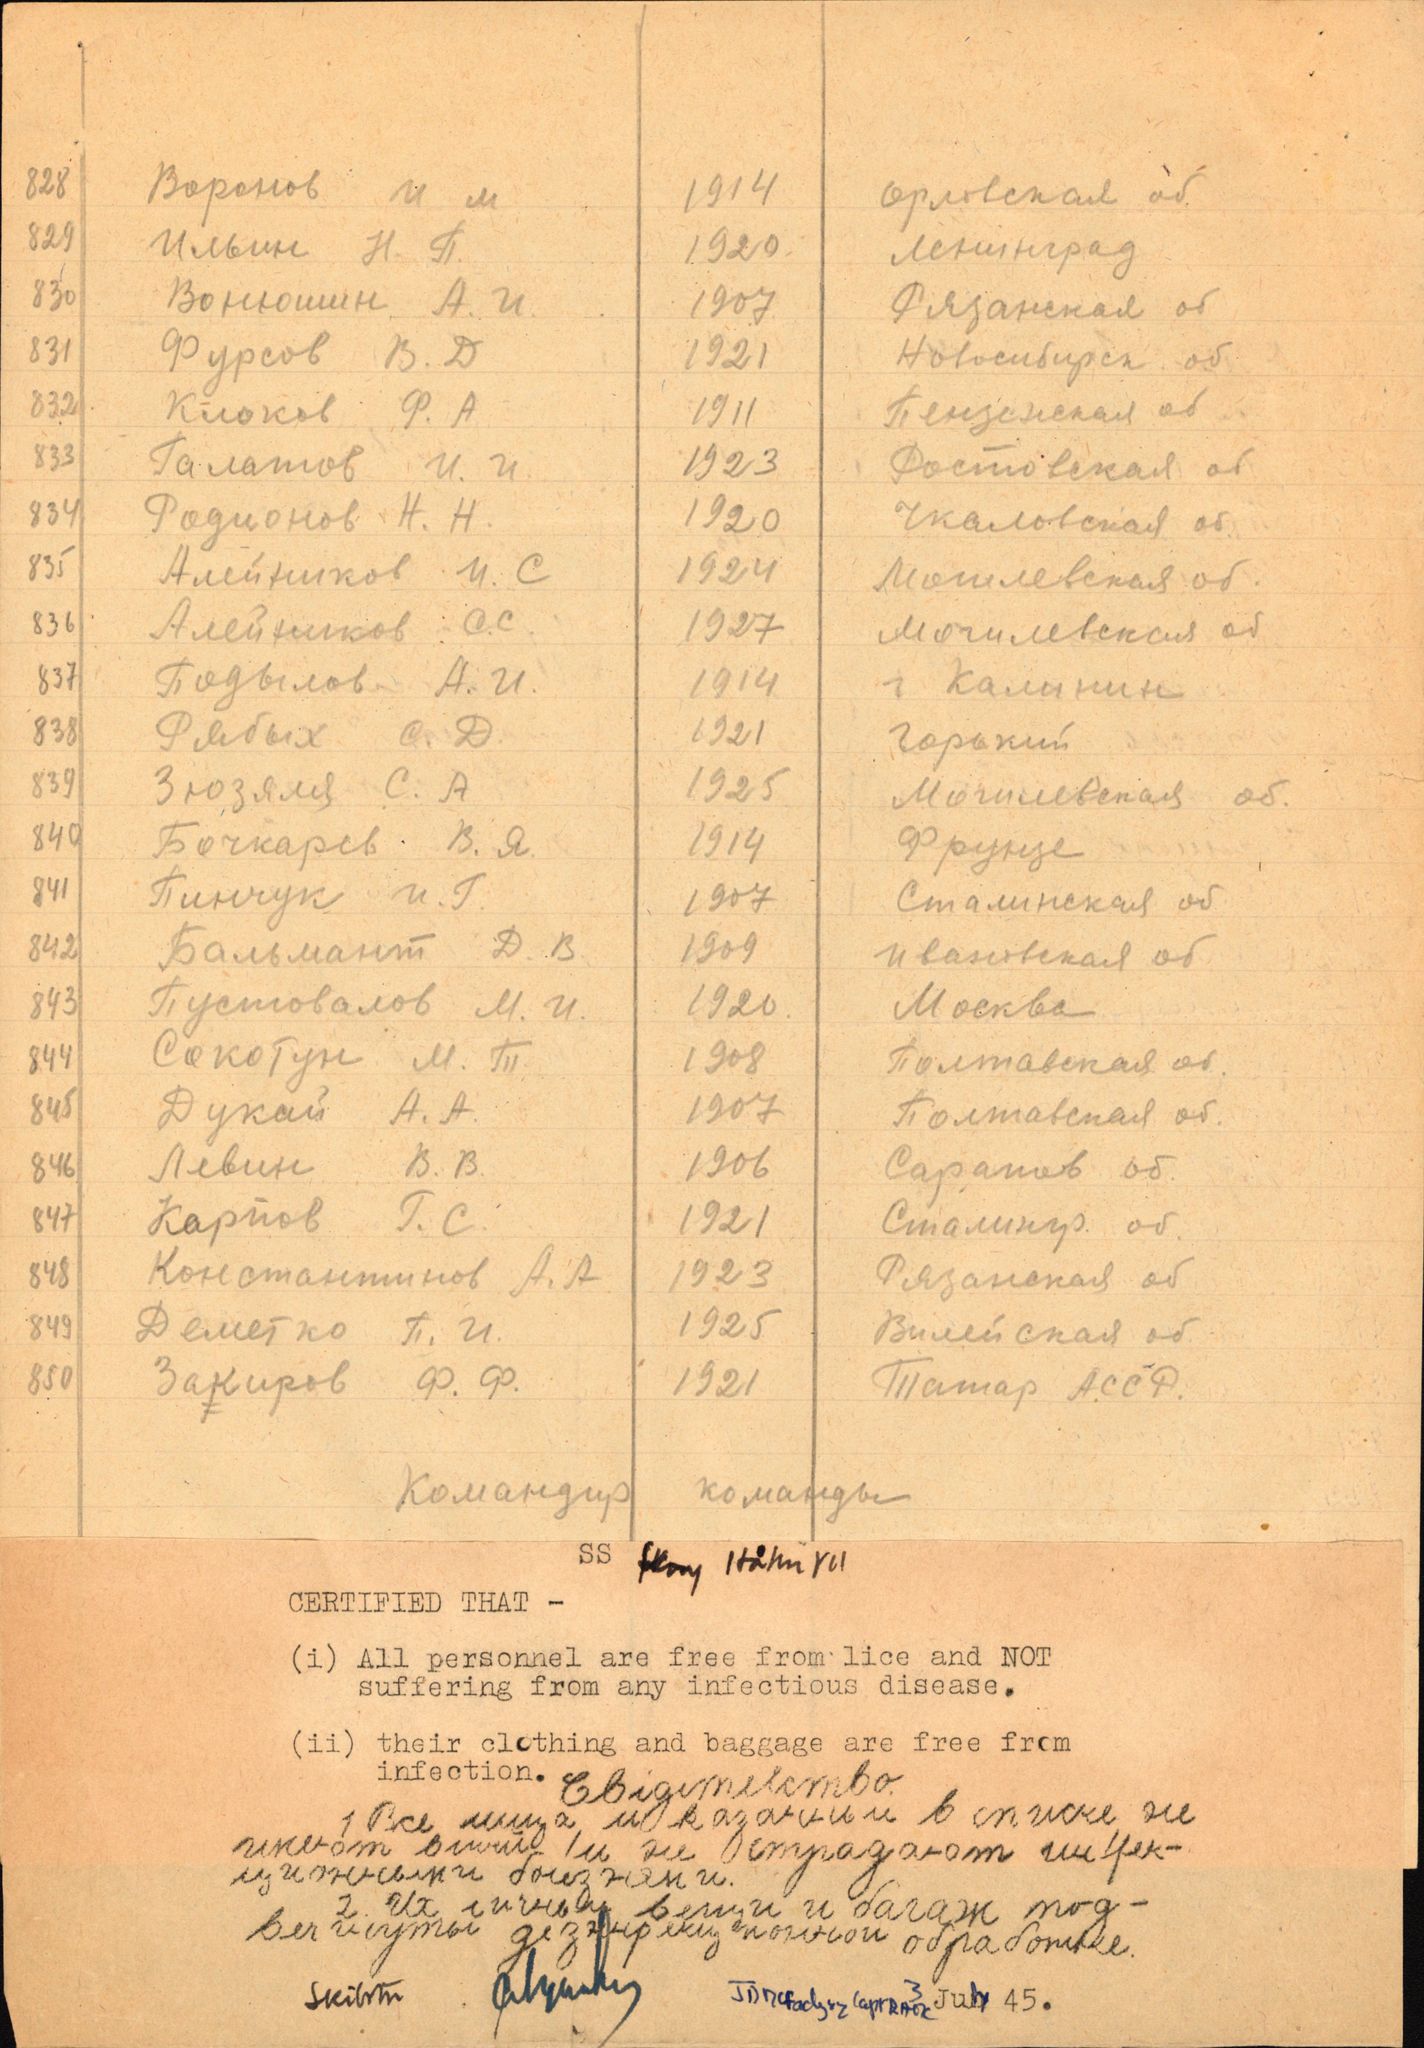 828 Воронов И М 1914 Орловская об.
829 Ильин Н. П. 1920. Ленинград
830 Вонюшин А. И. 1907 Рязанская об
831 Фурсов В. Д 1921 Новосибирск об
832 Клоков Ф. А 1911 Пензенская об
833 Галатов И. И. 1923 Ростовская об
834 Родионов Н. Н. 1920 Чкаловская об.
835 Алейников И. С 1924 Могилевская об.
836 Алейников С.С. 1927 Могилевская об
837 Подылов А. И. 1914 г Калинин
838 Рябых С. Д. 1921 Горький
839 Зюзяля С. А 1925 Могилевская об.
840 Бочкарев В. Я. 1914 Фрунзе
841 Пинчук И. Г. 1907 Сталинская об
842 Бальмант Д. В. 1909 Ивановская об
843 Пустовалов М. И. 1920. Москва
844 Сокотун М. Т. 1908 Полтавская об.
845 Дукай А. А. 1907 Полтавская об.
846 Левин В. В. 1906 Саратов об.
847 Карпов Г. С. 1921 Сталингр. об.
848 Константинов А. А 1923 Рязанская об
849 Деметко П. И. 1925 Вилейская об
850 Закиров Ф. Ф. 1921 Татар АССР.
Командир команды
SS
CERTIFIED THAT -
(i) All personnel are free from lice and NOT
suffering from any infectious disease.
(ii) their clothing and baggage are free from
infection.
Свідітельство.
1 Все лица указанные в списке не
имеют вшей и не страдают инфек-
ционными болезнями.
2. Их личные вещи и багаж под-
вергнуты дезинфекционной обработке.
Capt RAMC 3 July 45.